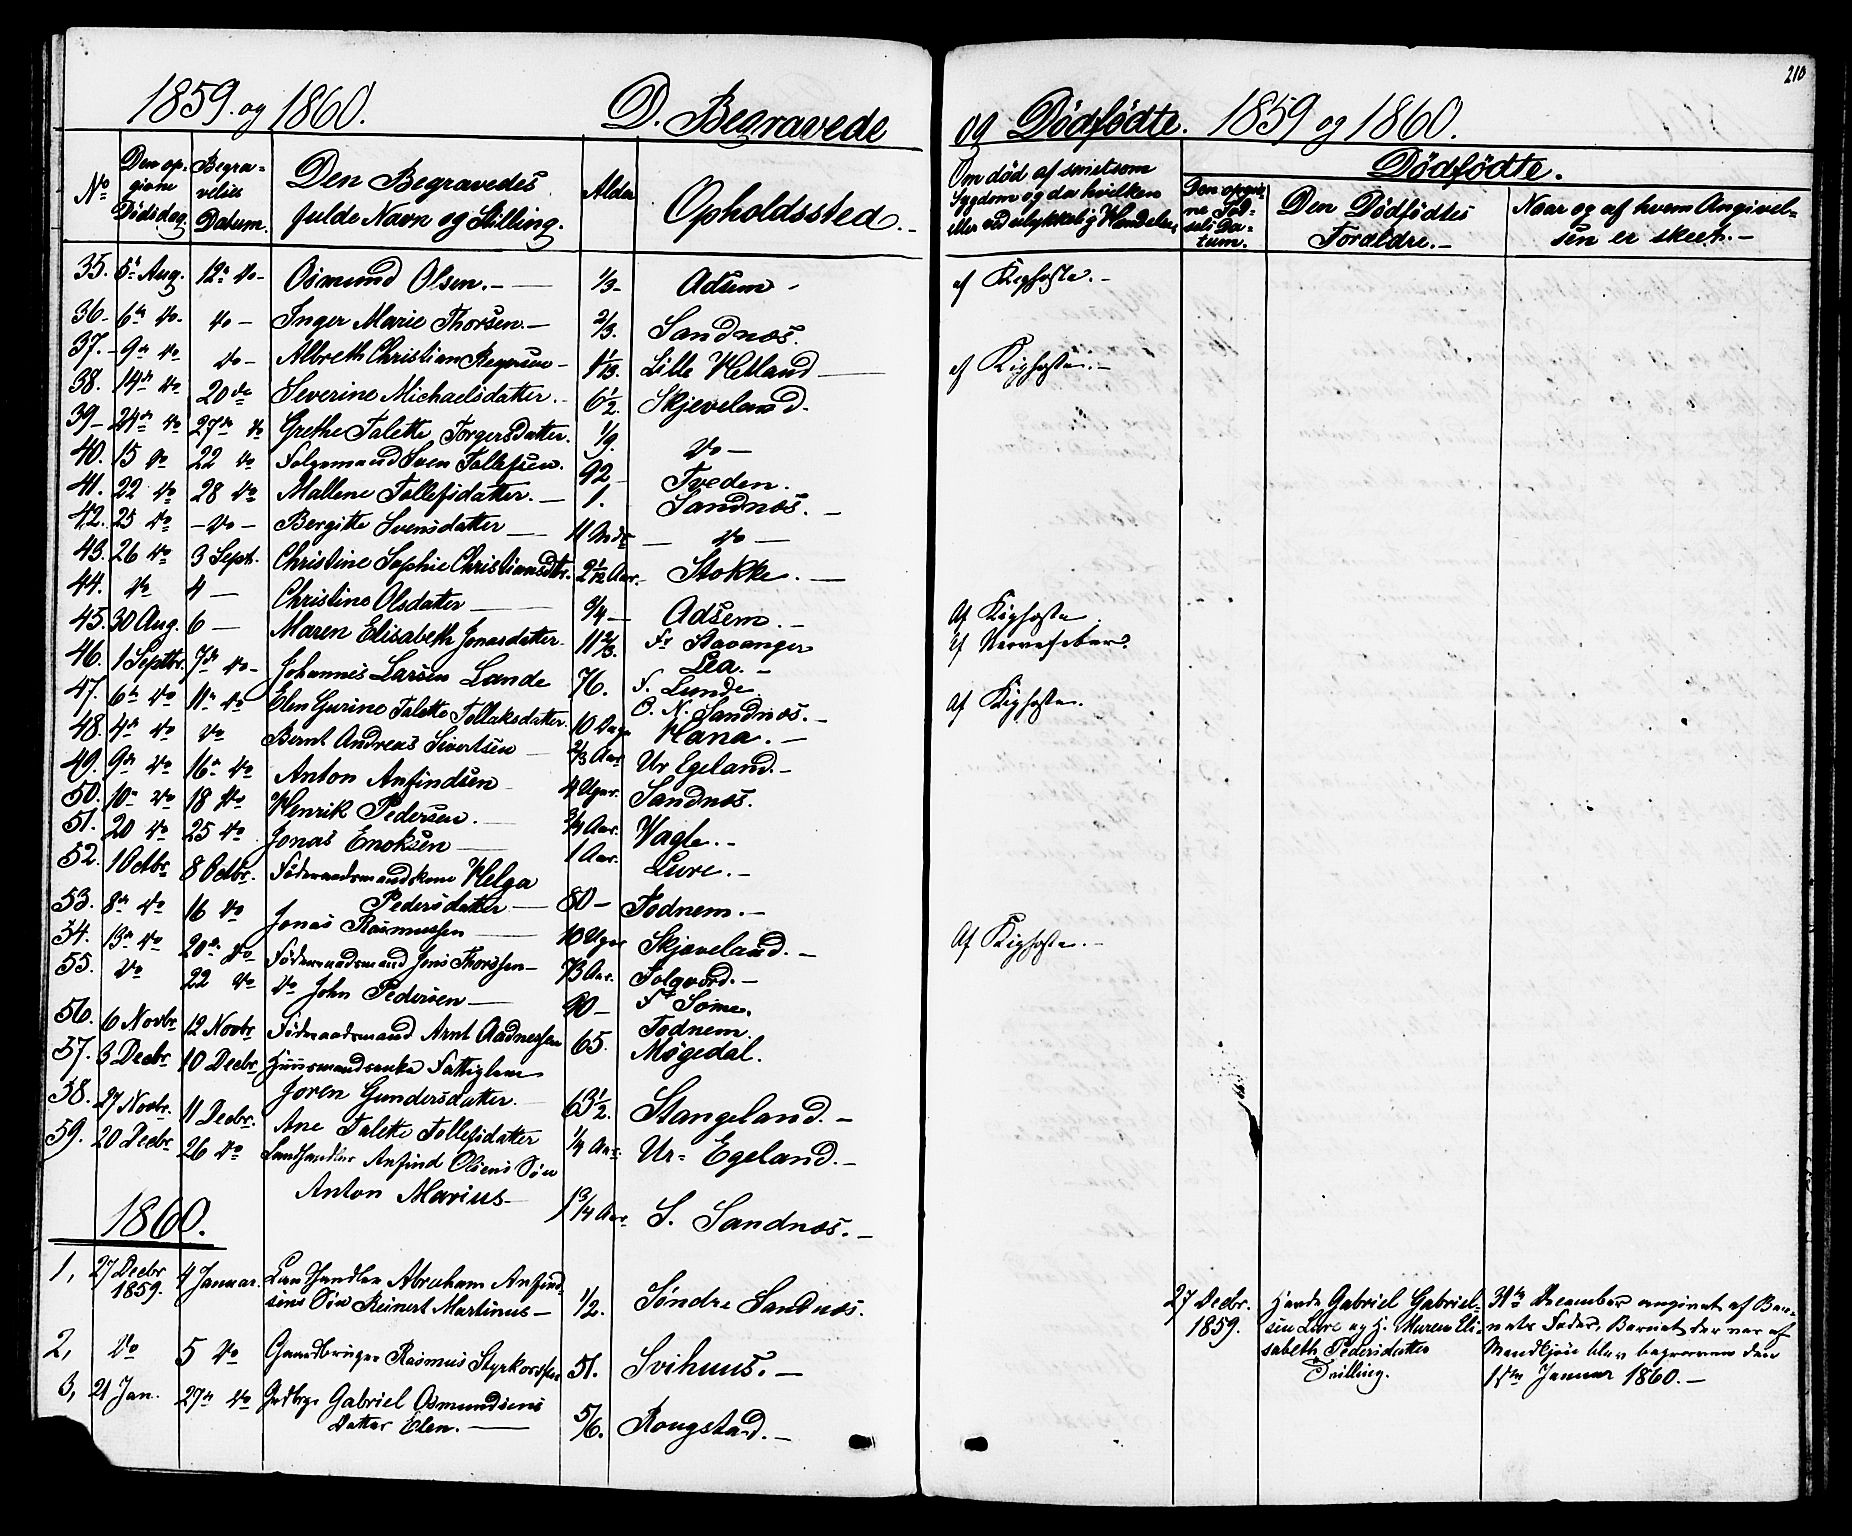 210
1859. og 1860. D. Begravede og Dödfödte. 1859 og 1860.
No
Den op-
givne
Dödsdag
Begra-
velses
Datum.
Den Begravedes
fulde Navn og Stilling.
Alder
Opholdssted.
Om död af smitsom
Sygdom og da hvilken
eller ved ulykkelig Hændelse
Dödfödte.
Den opgiv-
ne Föd-
sels Da-
tum.
Den Dödfödtes
Forældre.
Naar og af hvem Angivel-
sen er skeet.
35. 5t Aug. 12te do Osmund Olsen. 1/3 Adsem af Kighoste.
36. 6te do do Inger Marie Thorsen 2/3. Sandnæs.
37. 9de do do Albreth Christian 1 1/3. Lille Hetland af Kighoste.
38. 14de do 20de Severine Michaelsdatter. 6 1/2. Skjeveland.
39 24de do 27de do Grethe Talette Torgersdatter. 1/9. do
40. 15 do 22 do Sven Tollefsen. 92 Tveden.
41. 22 do 28 do Mallene Tollefsdatter. 1. Sandnæs.
42. 25 do do Bergitte Svensdatter 11 do
43. 26 do 3 Sept. Christine Sophie Christiansdtr. 2 1/12 Aar. Stokke.
44. do 4 Christine Olsdatter 3/4 Adsem. Af Kighoste
45. 30 Aug. 6 Maren Elisabeth Jonasdatter 11 2/3. Fr Stavanger Af Nervefeber.
Lea.
46. 1 Septbr. 7de do Johannes Larsen Lande 76. F. Lunde
O. N. Sandnæs.
47. 6te do 11te do Elen Gurine Talette Tollaksdatter 10 Dage Hana. Af Kighoste.
48. 4de do do Bernt Andreas Sivertsen 2/3 Aar Ur Egeland.
49. 9de do 16de do Anton Anfindsen 4 Uger. Sandnæs.
50. 10de do 18 do Henrik Pedersen. 3/4 Aar. Vagle.
51. 20 do 25 do Jonas Enoksen 1 Aar. Lure.
52. 1 Octbr 8 Octbr. Föderaadsmandskone Helga
Pedersdatter 80 Fodnem.
53. 8de do 16 do Jonas Rasmussen 10 Uger Skjæveland. Af Kighoste.
54. 13de do 20de do Föderaadsmand Jens Thorssen 73 Aar. Folqvord.
55. do 22 do do John Pedersen 90 Fr Some.
Fodnem
56. 6 Novbr 12 Novbr Föderaadsmand Arnt Aadnessen 65. Møgedal.
57. 3 Decbr 10 Decbr Huusmandsenke Fattiglem
Joren Gundersdatter. 63 1/2. Stangeland.
58. 27 Novbr. 11 Decbr. Ane Talette Tollefsdatter 1/4 Aar. Ur Egeland.
59. 20 Decbr 26 do Landhandler Anfind Olsens Sön
Anton Marius 1 3/4 Aar S. Sandnæs.
1860.
1, 27 Decbr
1859. 4 Januar. Landhandler Abraham Anfind-
sens Sön Reinert Martinus 1/2. Söndre Sandnæs.
27 Decbr.
1859.
Gabriel Gabriel-
sen Lure og H. Maren Eli-
sabeth Pedersdatter
Tvilling.
31te December angivet af Bar-
nets Fader. Barnet der var af
Mandkjön blev begraven den
1ste Januar 1860.
2, do 5 do Gaardbruger Rasmus Styrkorssen 51. Svihuus.
3, 21 Jan. 27de do Grdbrgr Gabriel Osmundsens
Datter Elen. 5/6. Rougstad.